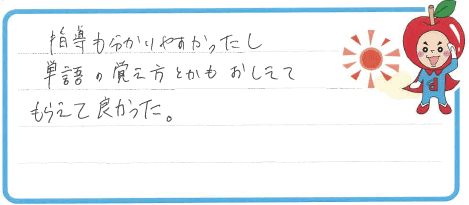 指導も分かりやすかったし
単語の覚え方とかもおしえて
もらえて良かった。
d